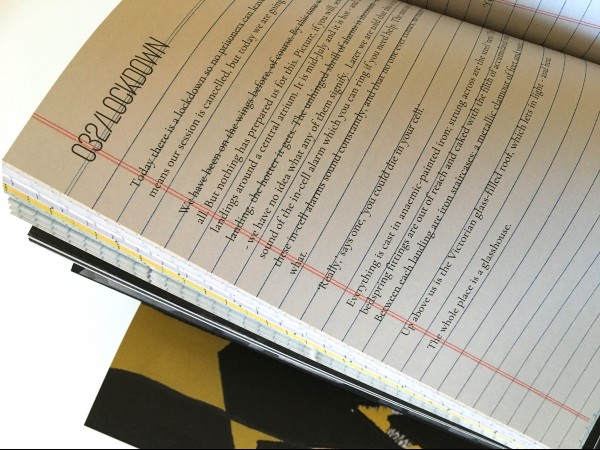 032/LOCKDOWN
Today there is a lockdown so no prisoners can leave
means our session is cancelled, but today we are going
We have been on the wings before, of course. By this
all. But nothing has prepared us for this. Picture, if you will,
landings around a central atrium. It is mid-July and it is hot
landing, the hotter it gets. The unhinged thrill of alarm
- we have no idea what any of them signify. Later we are told this
sound of the in-cell alarm which you can ring if you need help. The
these in-cell alarms sound constantly, and that no one ever comes
what.
'Really,' says one, 'you could die in your cell.'
Everything is cast in anaemic-painted iron: strong across are the
bedspring fittings are out of reach and caked with the filth of
Between each landing are iron staircases: a metallic clamour of feet and
Up above us is the Victorian glass-filled roof, which lets in light – and
The whole place is a glasshouse.